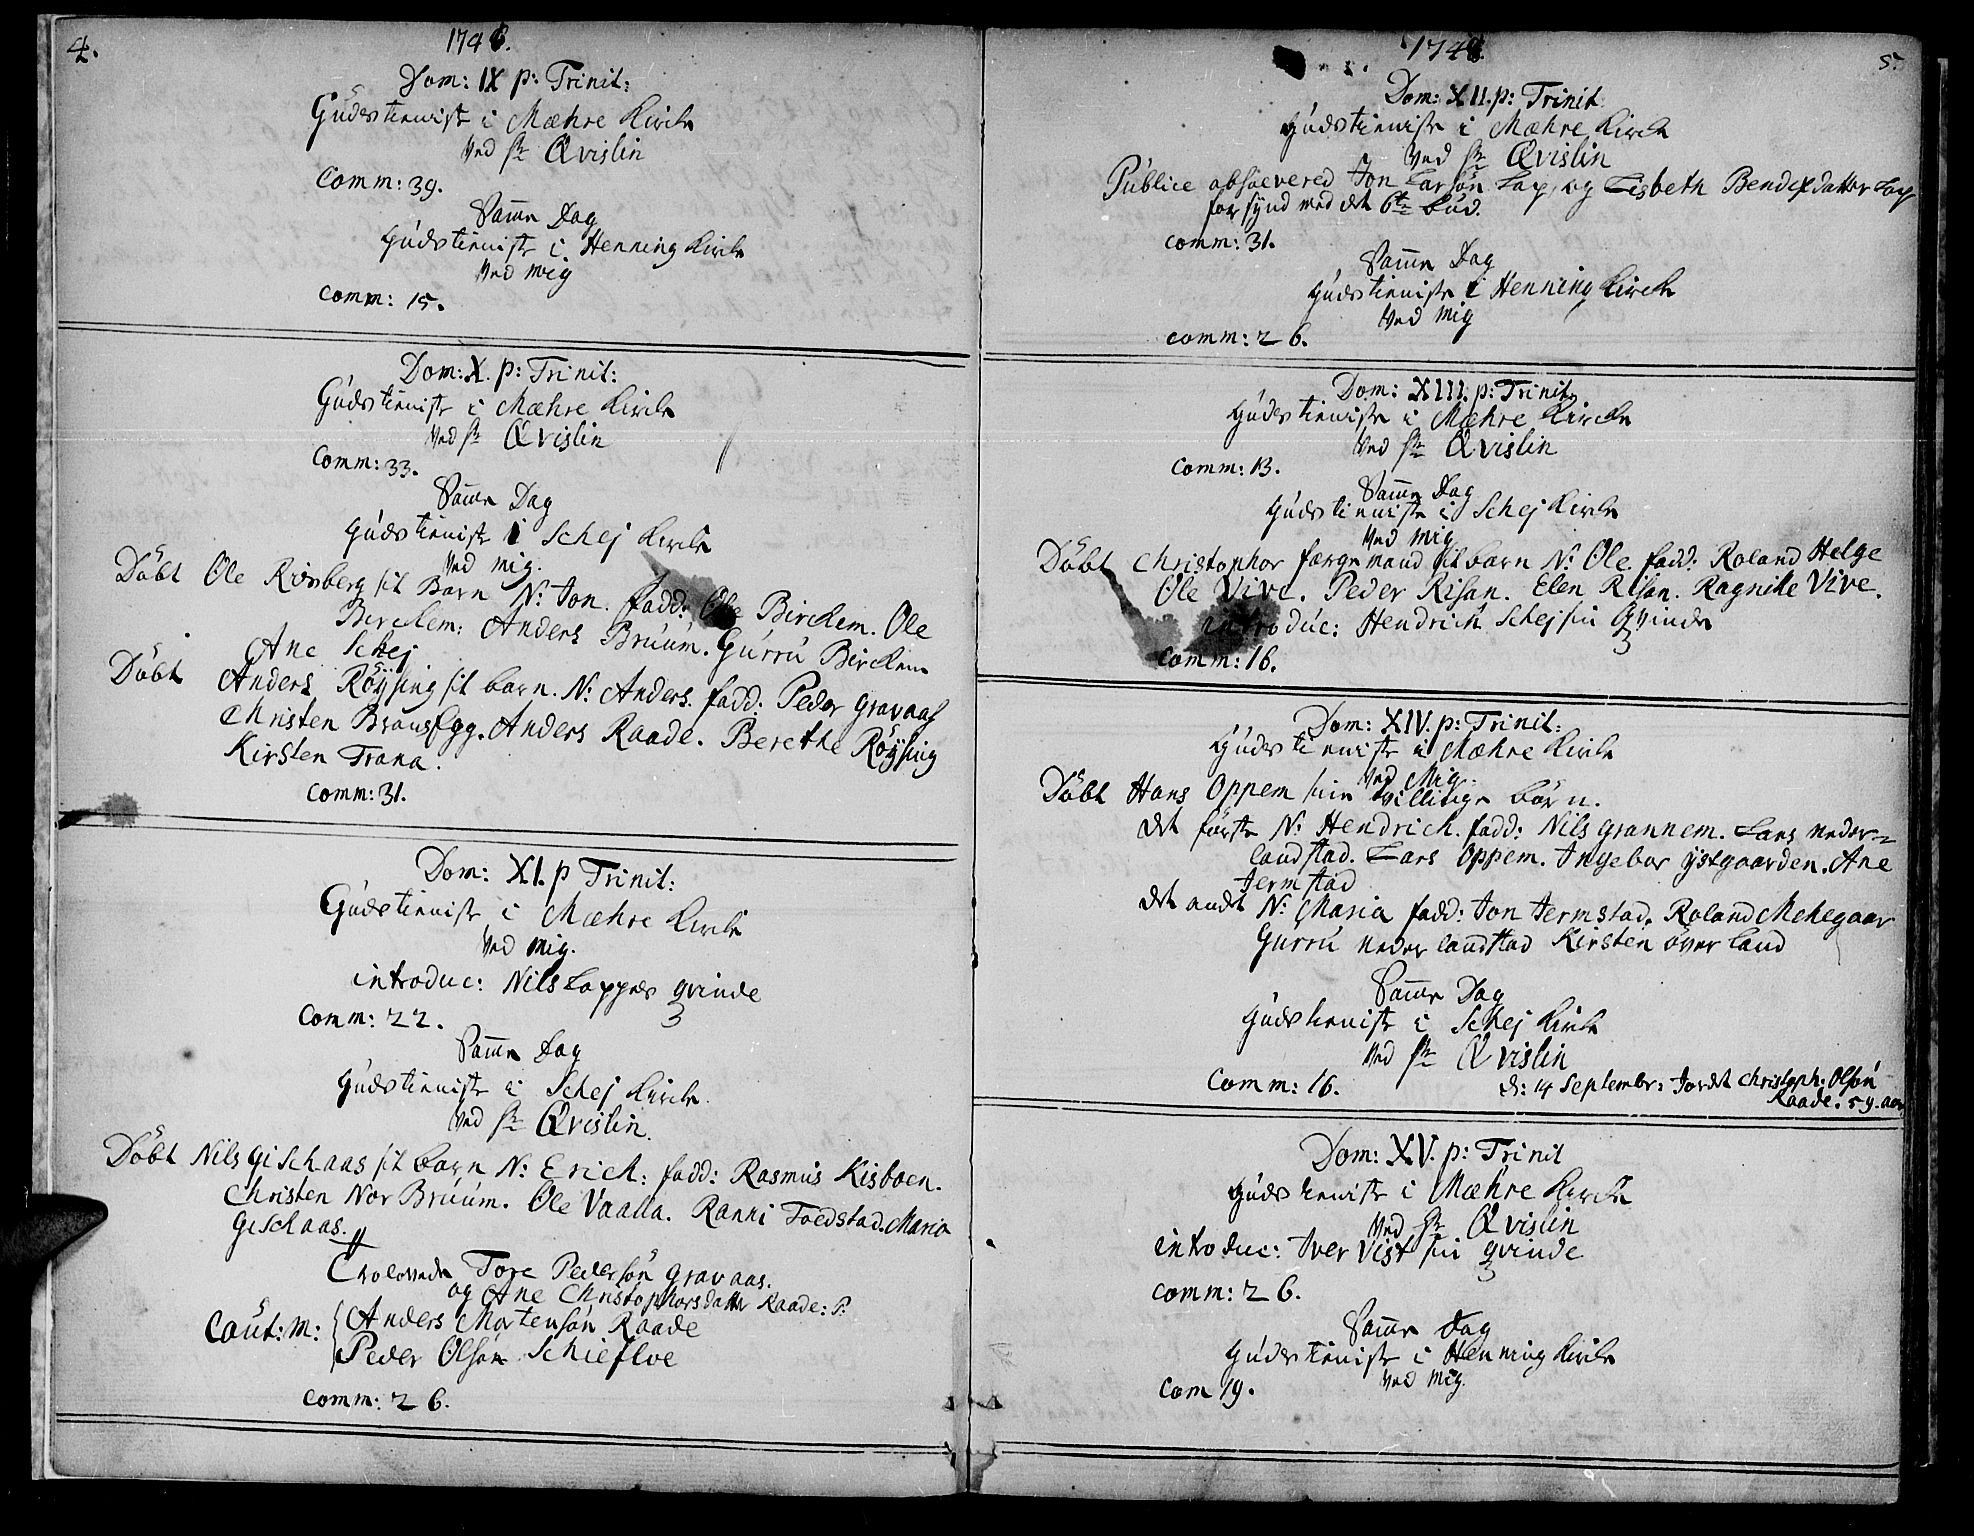 4.
1746.
Dom: IX p: Trinit:
Gudstieniste i Mæhre Kirche
ved Hr Qvislin
Comm: 39.
Samme Dag
Gudstieniste i Henning Kirche
ved mig
Comm: 15.
Dom: X. p: Trinit:
Gudstieniste i Mæhre Kirche
ved Hr Qvislin
Comm: 33.
Samme Dag
Gudstieniste i Schej Kirche
ved mig.
Döbt Ole Risberg sit Barn N: Jon. fadd: Ole Birckem. Ole
Birckem: Anders Bruum. Gurru Birckem
Ane Schej
Döbt Anders Röysing sit barn. N: Anders. fadd: Peder Gravaas
Christen Brausegg. Anders Raade. Berethe Röysing
Kirsten Trana.
Comm: 31.
Dom: XI. p Trinit:
Gudstieniste i Mæhre Kirche
ved mig.
introduc: Nils Lappes qvinde
Comm: 22.
Samme Dag
Gudstieniste i Schej Kirche
ved Hr Qvislin.
Döbt Nils Gischaas sit barn N: Erich: fadd: Rasmus Kisboen.
Christen Nor Bruum. Ole Vaalla. Ranni Foedstad. Maria
Gischaas.
Trolovede Tore Pedersön Gravaas.
og Ane Christophorsdatter Raade: S:
Caut: M: Anders Mortensön Raade
Peder Olsön Schiefloe
Comm: 26.
5.
1746.
Dom: XII. p: Trinit
Gudstieniste i Mæhre Kirche
ved Hr Qvislin
Publice absolvered Jon Larsön Lap, og Lisbeth Bendixdatter Lap
for synd mod det 6te bud.
comm: 31.
Samme Dag
Gudstieniste i Henning Kirche
ved mig
comm: 26.
Dom: XIII. p: Trinit
Gudstieniste i Mæhre Kirche
ved Hr Qvislin
Comm: 13.
Samme Dag
Gudstieniste i Schej Kirche
ved mig
Döbt Christophor færgemand sit barn N: Ole. fadd: Roland Helge
Ole Vive. Peder Risan. Elen Risan. Ragnile Vive.
introduc: Hendrich Schej sin Qvinde
Comm: 16.
Dom: XIV. p: Trinit:
Gudstieniste i Mæhre Kirche
ved Mig.
Döbt Hans Oppem sine tvillinge börn.
det förste N: Hendrich. fadd: Nils Grannem. Lars neder=
landstad. Lars Oppem. Ingebor ystgaarden. Ane
Jermstad
det andet N: Maria fadd: Jon Jermstad. Roland Mehegaar
Gurru nederlandstad Kirsten överland
Samme Dag
Gudstieniste i Schej Kirche
ved Hr Qvislin
Comm: 16.
d: 14 Septembr: Jordet Christoph: Olsön
Raade. 59. aar
Dom: XV. p: Trinit
Gudstieniste i Mæhre Kirche
ved Hr Qvislin
introduc: Iver Vist sin qvinde
comm: 26.
Samme Dag
Gudstieniste i Henning Kirche
ved mig.
Com 19.